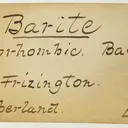 Barite
orrhombic. Ba
Frizington.
berland.